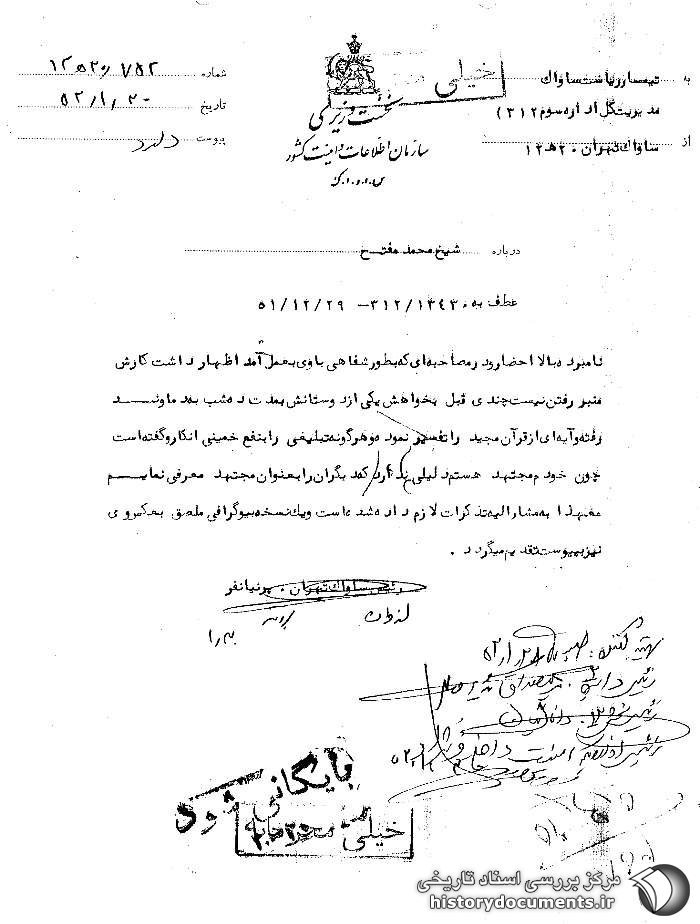 به تیمسار ریاست ساواک
مدیریت کل اداره سوم (۳۱۲)
از ساواک تهران ۲۰ ه‍ ۱۲
خیلی
نخست وزیری
سازمان اطلاعات و امنیت کشور
س.ا.و.ا.ک
شماره ۱۲۵۲۰/۷۵۲
تاریخ ۵۲/۱/۲۰
پیوست دارد
درباره شیخ محمد مفتح
عطف به ۳۱۲/۱۳۴۳۰ – ۵۱/۱۲/۲۹
نامبرده بالا احضار و در مصاحبه‌ای که بطور شفاهی با وی بعمل آمد اظهار داشت کارش
منبر رفتن نیست چندی قبل بخواهش یکی از دوستانش بمدت ده شب به دماوند
رفته و آیه‌ای از قرآن مجید را تفسیر نمود و هرگونه تبلیغی را بنفع خمینی انکار و گفته است
چون خودم مجتهد هستم دلیلی ندارد که دیگران را بعنوان مجتهد معرفی نمایم
معهذا به مشارالیه تذکرات لازم داده شده است و یک نسخه بیوگرافی ملصق به عکس وی
نیز به پیوست تقدیم میگردد .
رئیس ساواک تهران . پرنیانفر
تهیه کننده :
رئیس
رئیس بخش
امنیت داخلی
بایگانی شود
خیلی محرمانه
مرکز بررسی اسناد تاریخی
historydocuments.ir